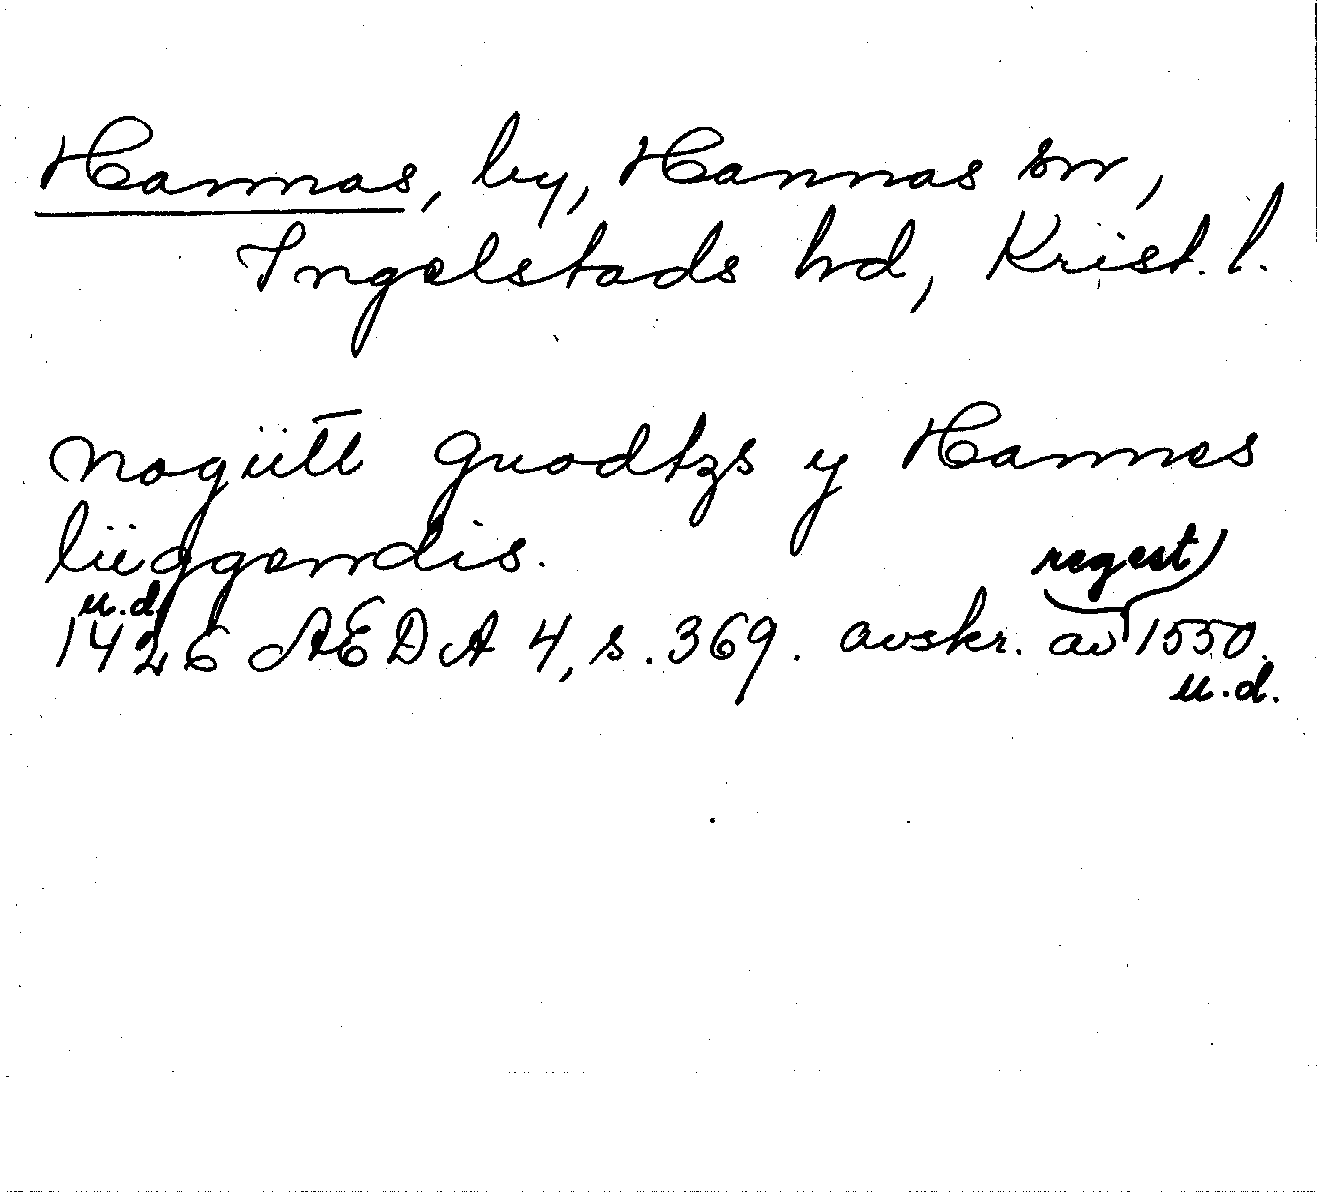 Hannas, by, Hannas sn,
Ingelstads hd, Krist. l.
nogütt guodtzs y Hannes
lüeggendis.
regest
u.d.
1426 ÆDA 4, s. 369. avskr. av 1550.
u.d.